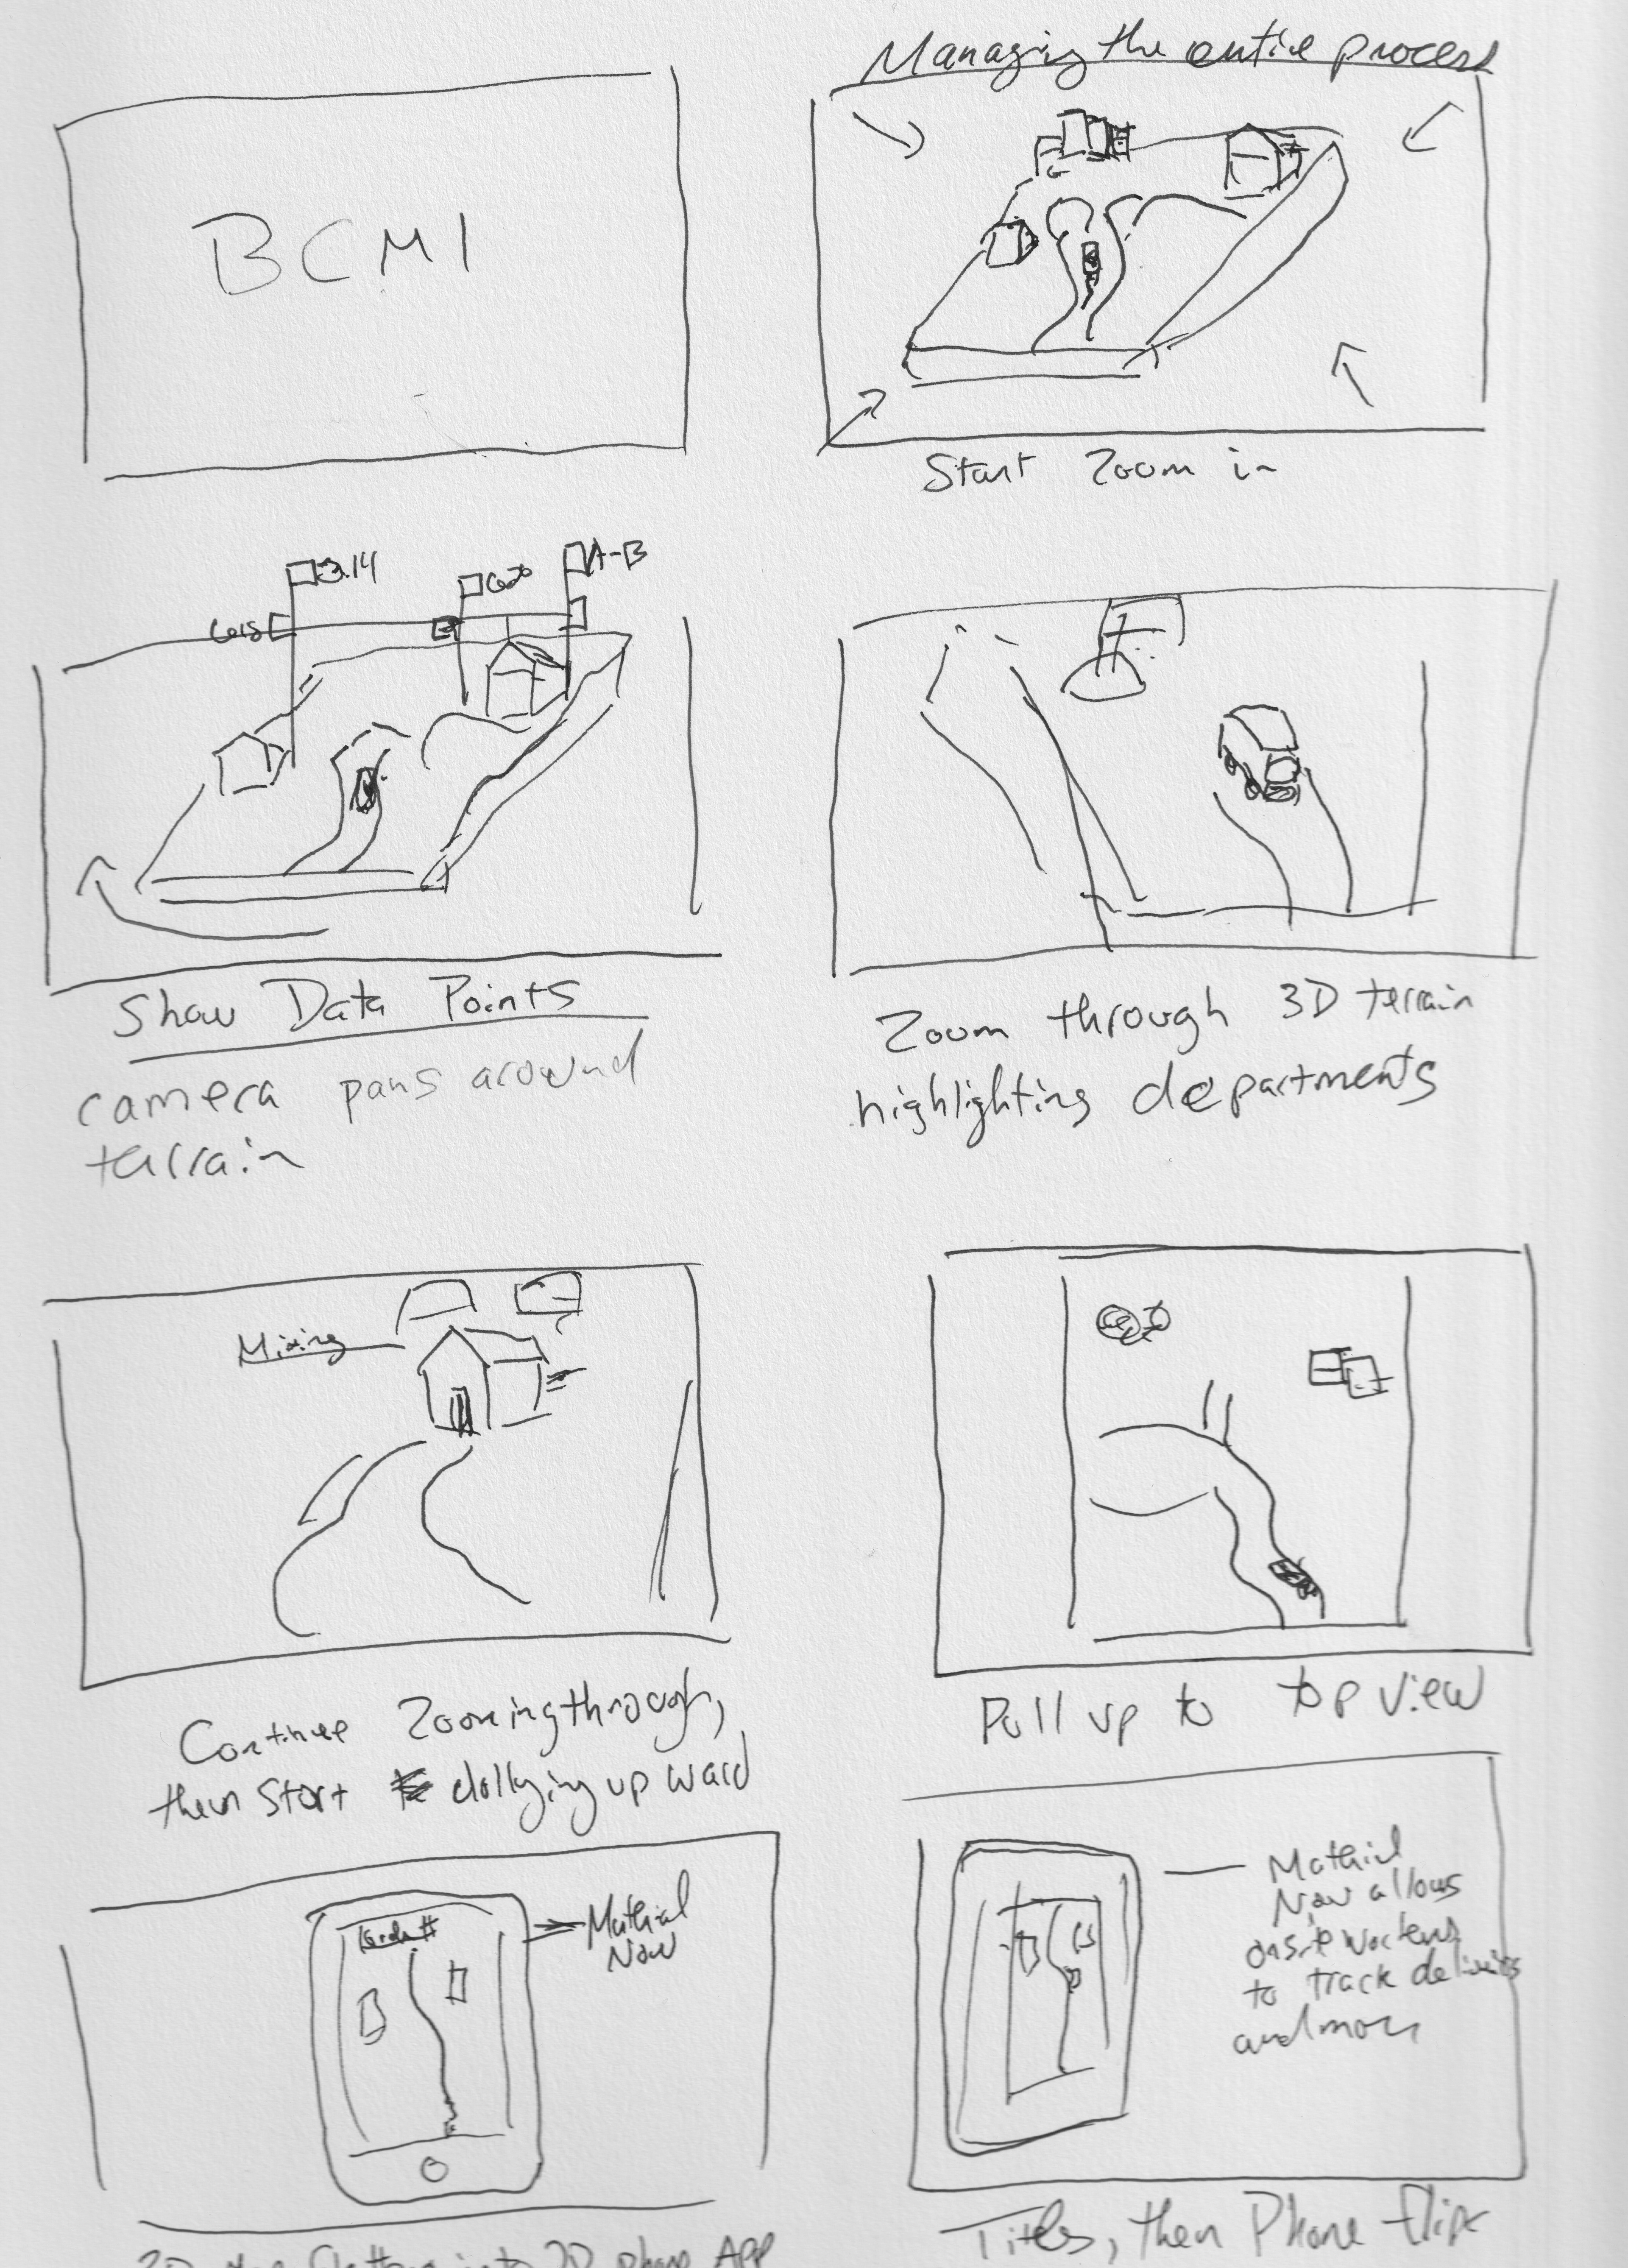 BCMI
Managing the entire process
Start Zoom in
3.14
A-B
Show Data Points
camera pans around
terrain
Zoom through 3D terrain
highlighting departments
Mixing
Continue Zooming through,
then start dollying upward
Pull up to top view
Matirial
Now
Matirial
Now allows
onsite workers
to track deliveries
and more
2D phone App
Titles, then Phone flips